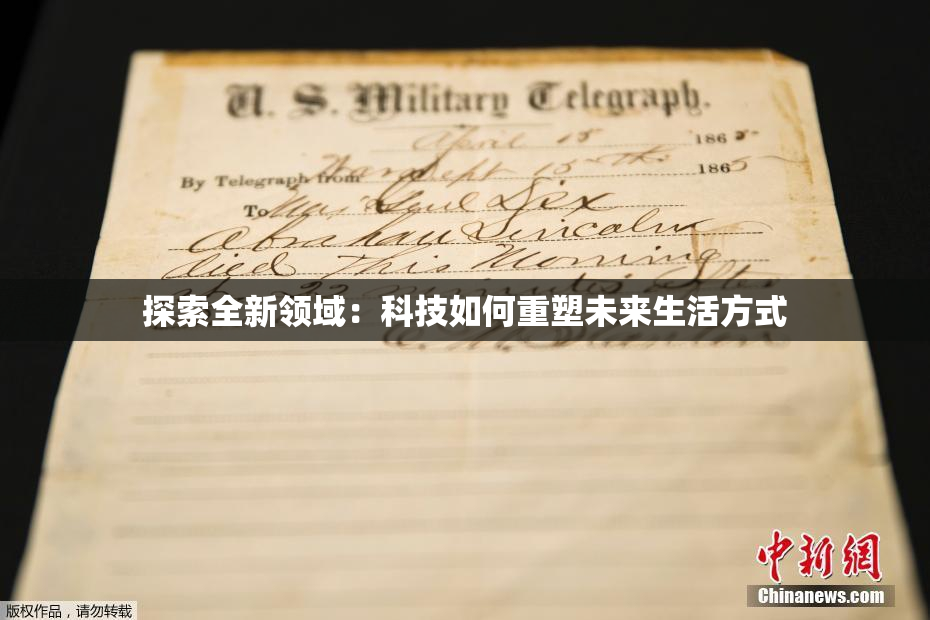 U. S. Military Telegraph.
April 15 1865
By Telegraph from War Dept 15th 1865
To Maj Genl Dix
Abraham Lincoln
died This Morning
at 22 minutes after
探索全新领域：科技如何重塑未来生活方式
E. M. Stanton
中新網
Chinanews.com
版权作品，请勿转载